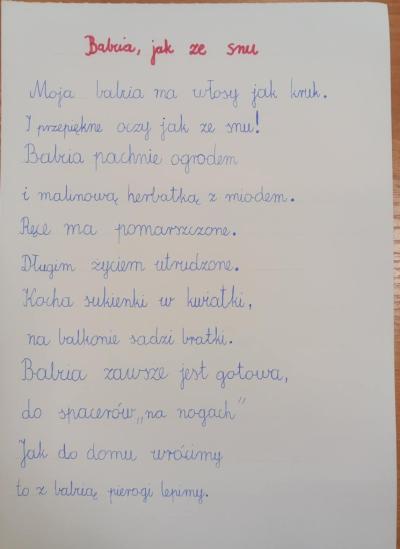 Babcia, jak ze snu
Moja babcia ma włosy jak kruk.
I przepiękne oczy jak ze snu!
Babcia pachnie ogrodem
i malinową herbatką z miodem.
Ręce ma pomarszczone.
Długim życiem utrudzone.
Kocha sukienki w kwiatki,
na balkonie sadzi bratki.
Babcia zawsze jest gotowa,
do spacerów „na nogach"
Jak do domu wrócimy
to z babcią pierogi lepimy.